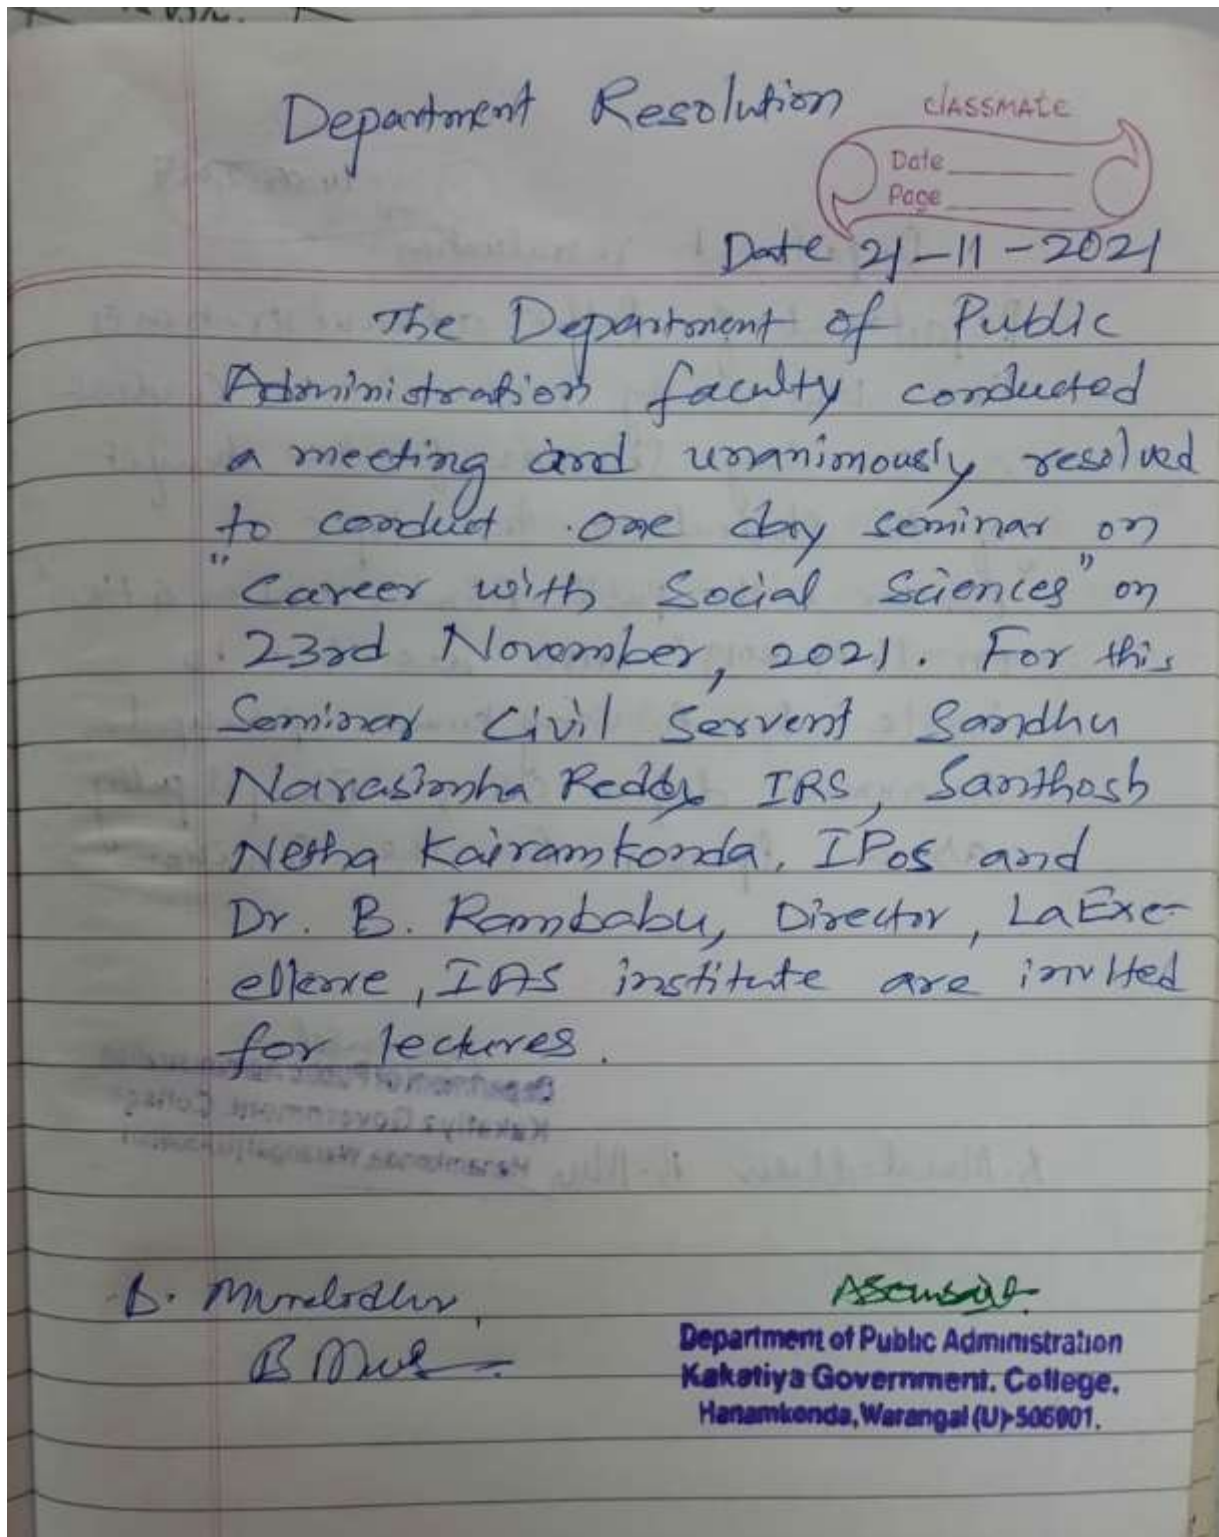 Department Resolution
classmate
Date
Page
Date 21-11-2021
The Department of Public
Administration faculty conducted
a meeting and unanimously resolved
to conduct one day seminar on
"Career with Social Sciences" on
23rd November, 2021. For this
Seminar Civil Servent Sandhu
Narasimha Reddy IRS, Santhosh
Netha Kairamkonda, IPoS and
Dr. B. Rambabu, Director, La Exc-
ellence, IAS institute are invited
for lectures.
B.
Department of Public Administration
Kakatiya Government. College.
Hanamkonda, Warangal (U)-506001.